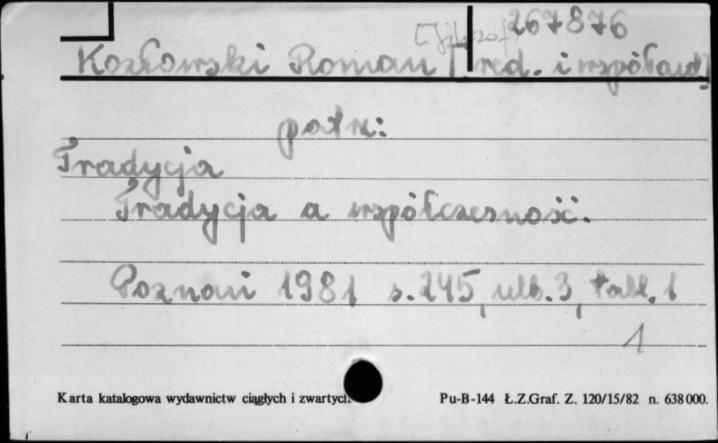 [filozof] 267876
Kozłowski Roman [red. i współaut.]
patrz:
Tradycja
Tradycja a współczesność.
Poznań 1981 s. 245, nlb. 3, tabl. 1
1
Karta katalogowa wydawnictw ciągłych i zwartych
Pu-B-144 Ł.Z.Graf. Z. 120/15/82 n. 638000.